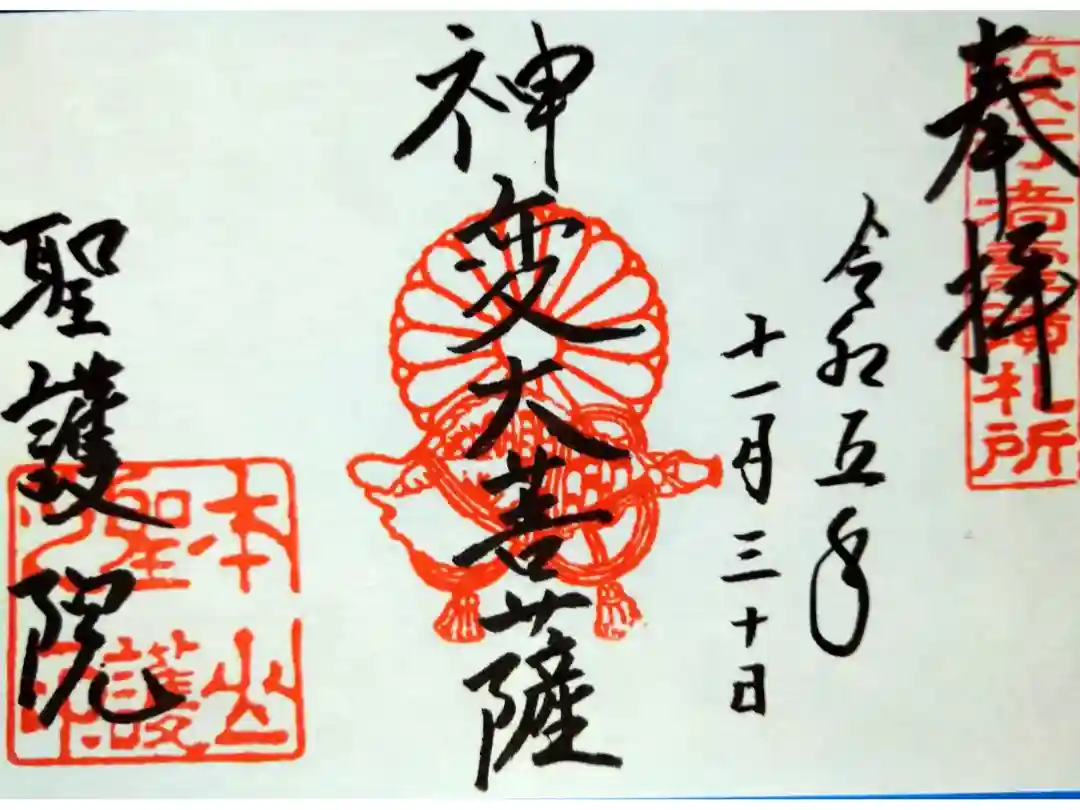 奉拝
役行者霊蹟札所
令和五年
十一月三十日
神変大菩薩
聖護院
本山
聖護
院印